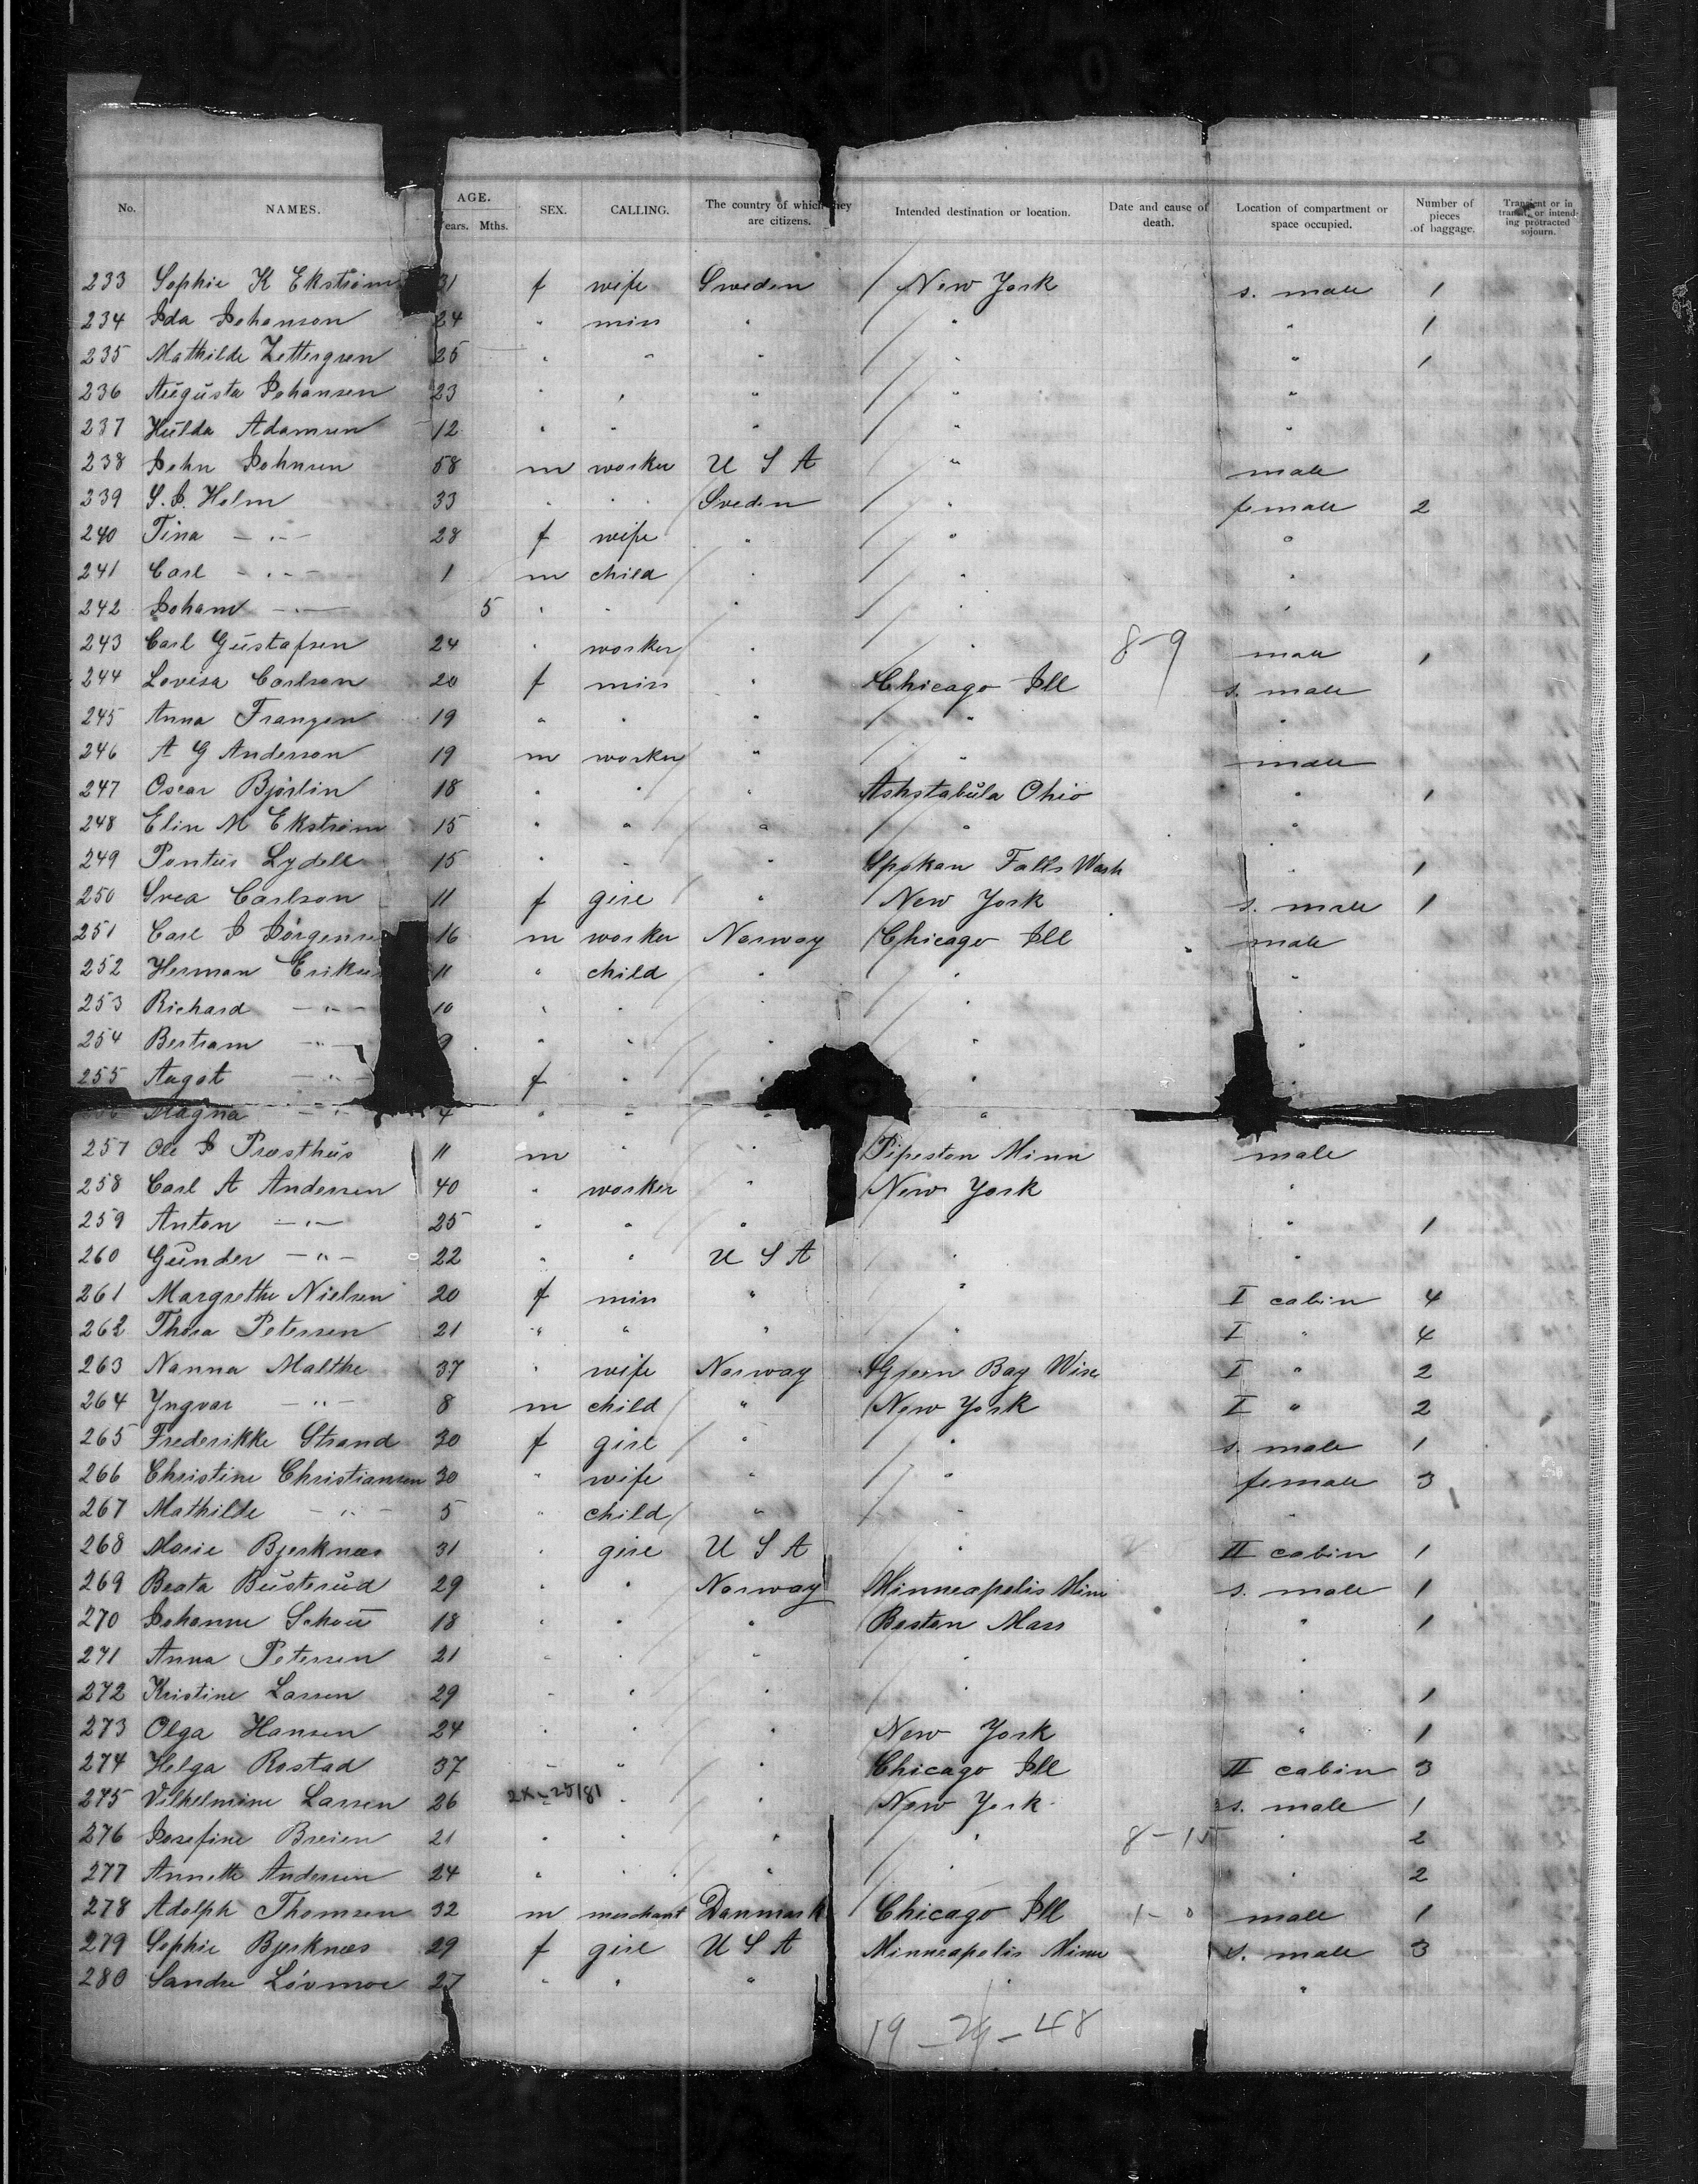 No. NAMES. AGE. Years. Mths. SEX. CALLING. The country of which they are citizens. Intended destination or location. Date and cause of death. Location of compartment or space occupied. Number of pieces of baggage. Transient or in transit, or intending protracted sojourn.
233 Sophie K Ekström 31 f wife Sweden New York s. male 1
234 Ida Johanson 24 " miss " " " 1
235 Mathilde Zettergren 25 " " " " " 1
236 Augusta Johansen 23 " " " " "
237 Hulda Adamsen 12 " " " " "
238 John Johnsen 58 m worker U S A " male
239 S. J. Holm 33 " " Sveden " female 2
240 Tina — " — 28 f wife " " "
241 Carl — " — 1 m child " " "
242 Johan — " — 5 " " " " "
243 Carl Gustafsen 24 " worker " " 8-9 male 1
244 Lovisa Carlson 20 f miss " Chicago Ill s. male
245 Anna Franzen 19 " " " " "
246 A G Anderson 19 m worker " " male
247 Oscar Bjørlin 18 " " " Ashstabula Ohio " 1
248 Elin M Ekstrøm 15 " " " " "
249 Pontus Lydell 15 " " " Spokan Falls Wash " 1
250 Svea Carlson 11 f girl " New York s. male 1
251 Carl J Jørgens 16 m worker Norway Chicago Ill male
252 Herman Eriks 11 " child " " "
253 Richard — " — 10 " " " " "
254 Bertram — " — 9 " " " " "
255 Aagot — " — f " " " "
Magna — " — 4 " " " "
257 Ole J Præsthus 11 m " " Pipeston Minn male
258 Carl A Andersen 40 " worker " New York "
259 Anton — " — 25 " " " " " 1
260 Gunder — " — 22 " " U S A " "
261 Margrethe Nielsen 20 f miss " " I cabin 4
262 Thora Petersen 21 " " " " I " 4
263 Nanna Malthe 37 " wife Norway Green Bay Wisc I " 2
264 Yngvar — " — 8 m child " New York I " 2
265 Frederikke Strand 30 f girl " " s. male 1
266 Christine Christiansen 30 " wife " " female 3
267 Mathilde — " — 5 " child " " "
268 Marie Bjerknæs 31 " girl U S A " II cabin 1
269 Beata Busterud 29 " " Norway Minneapolis Minn s. male 1
270 Johanne Schou 18 " " " Boston Mass " 1
271 Anna Petersen 21 " " " " "
272 Kristine Larsen 29 " " " " " 1
273 Olga Hansen 24 " " " New York " 1
274 Helga Rostad 37 " " " Chicago Ill II cabin 3
275 Vilhelmine Larsen 26 " " New York s. male 1
276 Josefine Breien 21 " " " " 8-15 " 2
277 Annette Andersen 24 " " " " " 2
278 Adolph Thomsen 32 m merchant Danmark Chicago Ill male 1
279 Sophie Bjerknæs 29 f girl U S A Minneapolis Minn s. male 3
280 Sandre Løvmoe 27 " " " " "